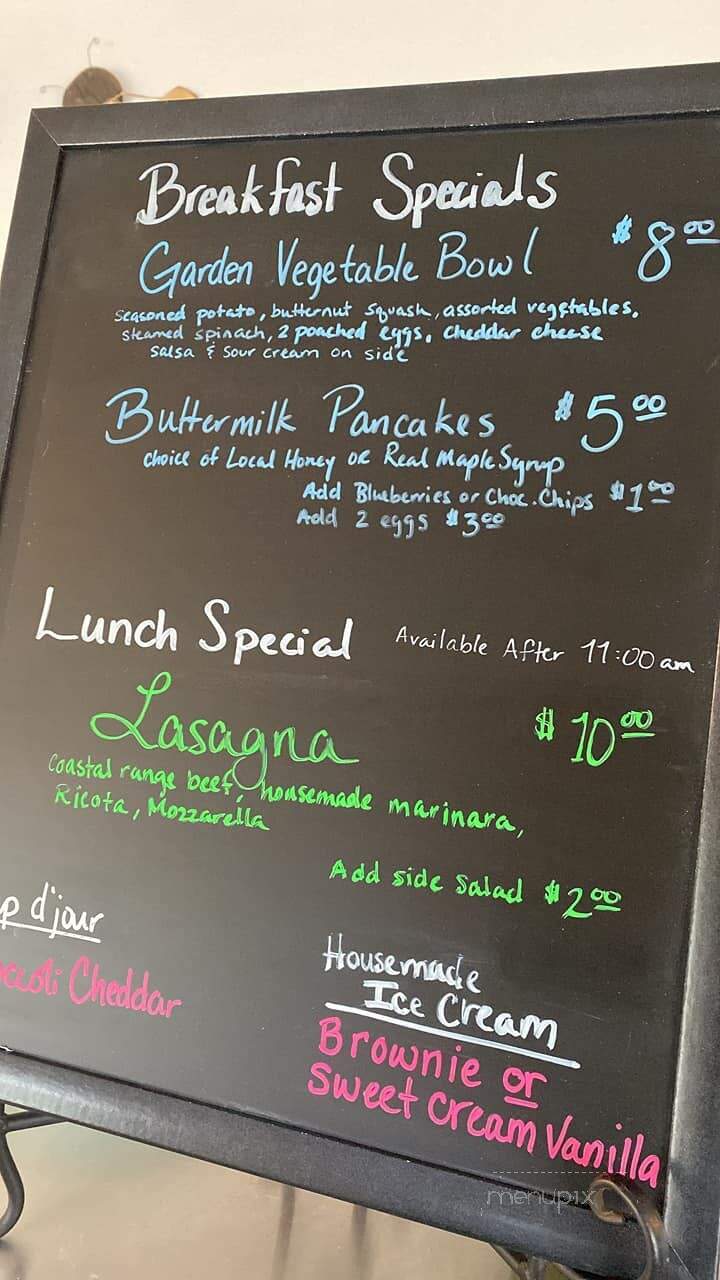 Breakfast Specials
Garden Vegetable Bowl $8.00
seasoned potato, butternut squash, assorted vegetables,
steamed spinach, 2 poached eggs, cheddar cheese
salsa & sour cream on side
Buttermilk Pancakes $5.00
choice of Local Honey or Real Maple Syrup
Add Blueberries or Choc. Chips $1.00
Add 2 eggs $3.00
Lunch Special Available After 11:00 am
Lasagna $10.00
Coastal range beef, housemade marinara,
Ricota, Mozzarella
Add side Salad $2.00
p d'jour
occoli Cheddar
Housemade
Ice Cream
Brownie or
Sweet Cream Vanilla
menupix